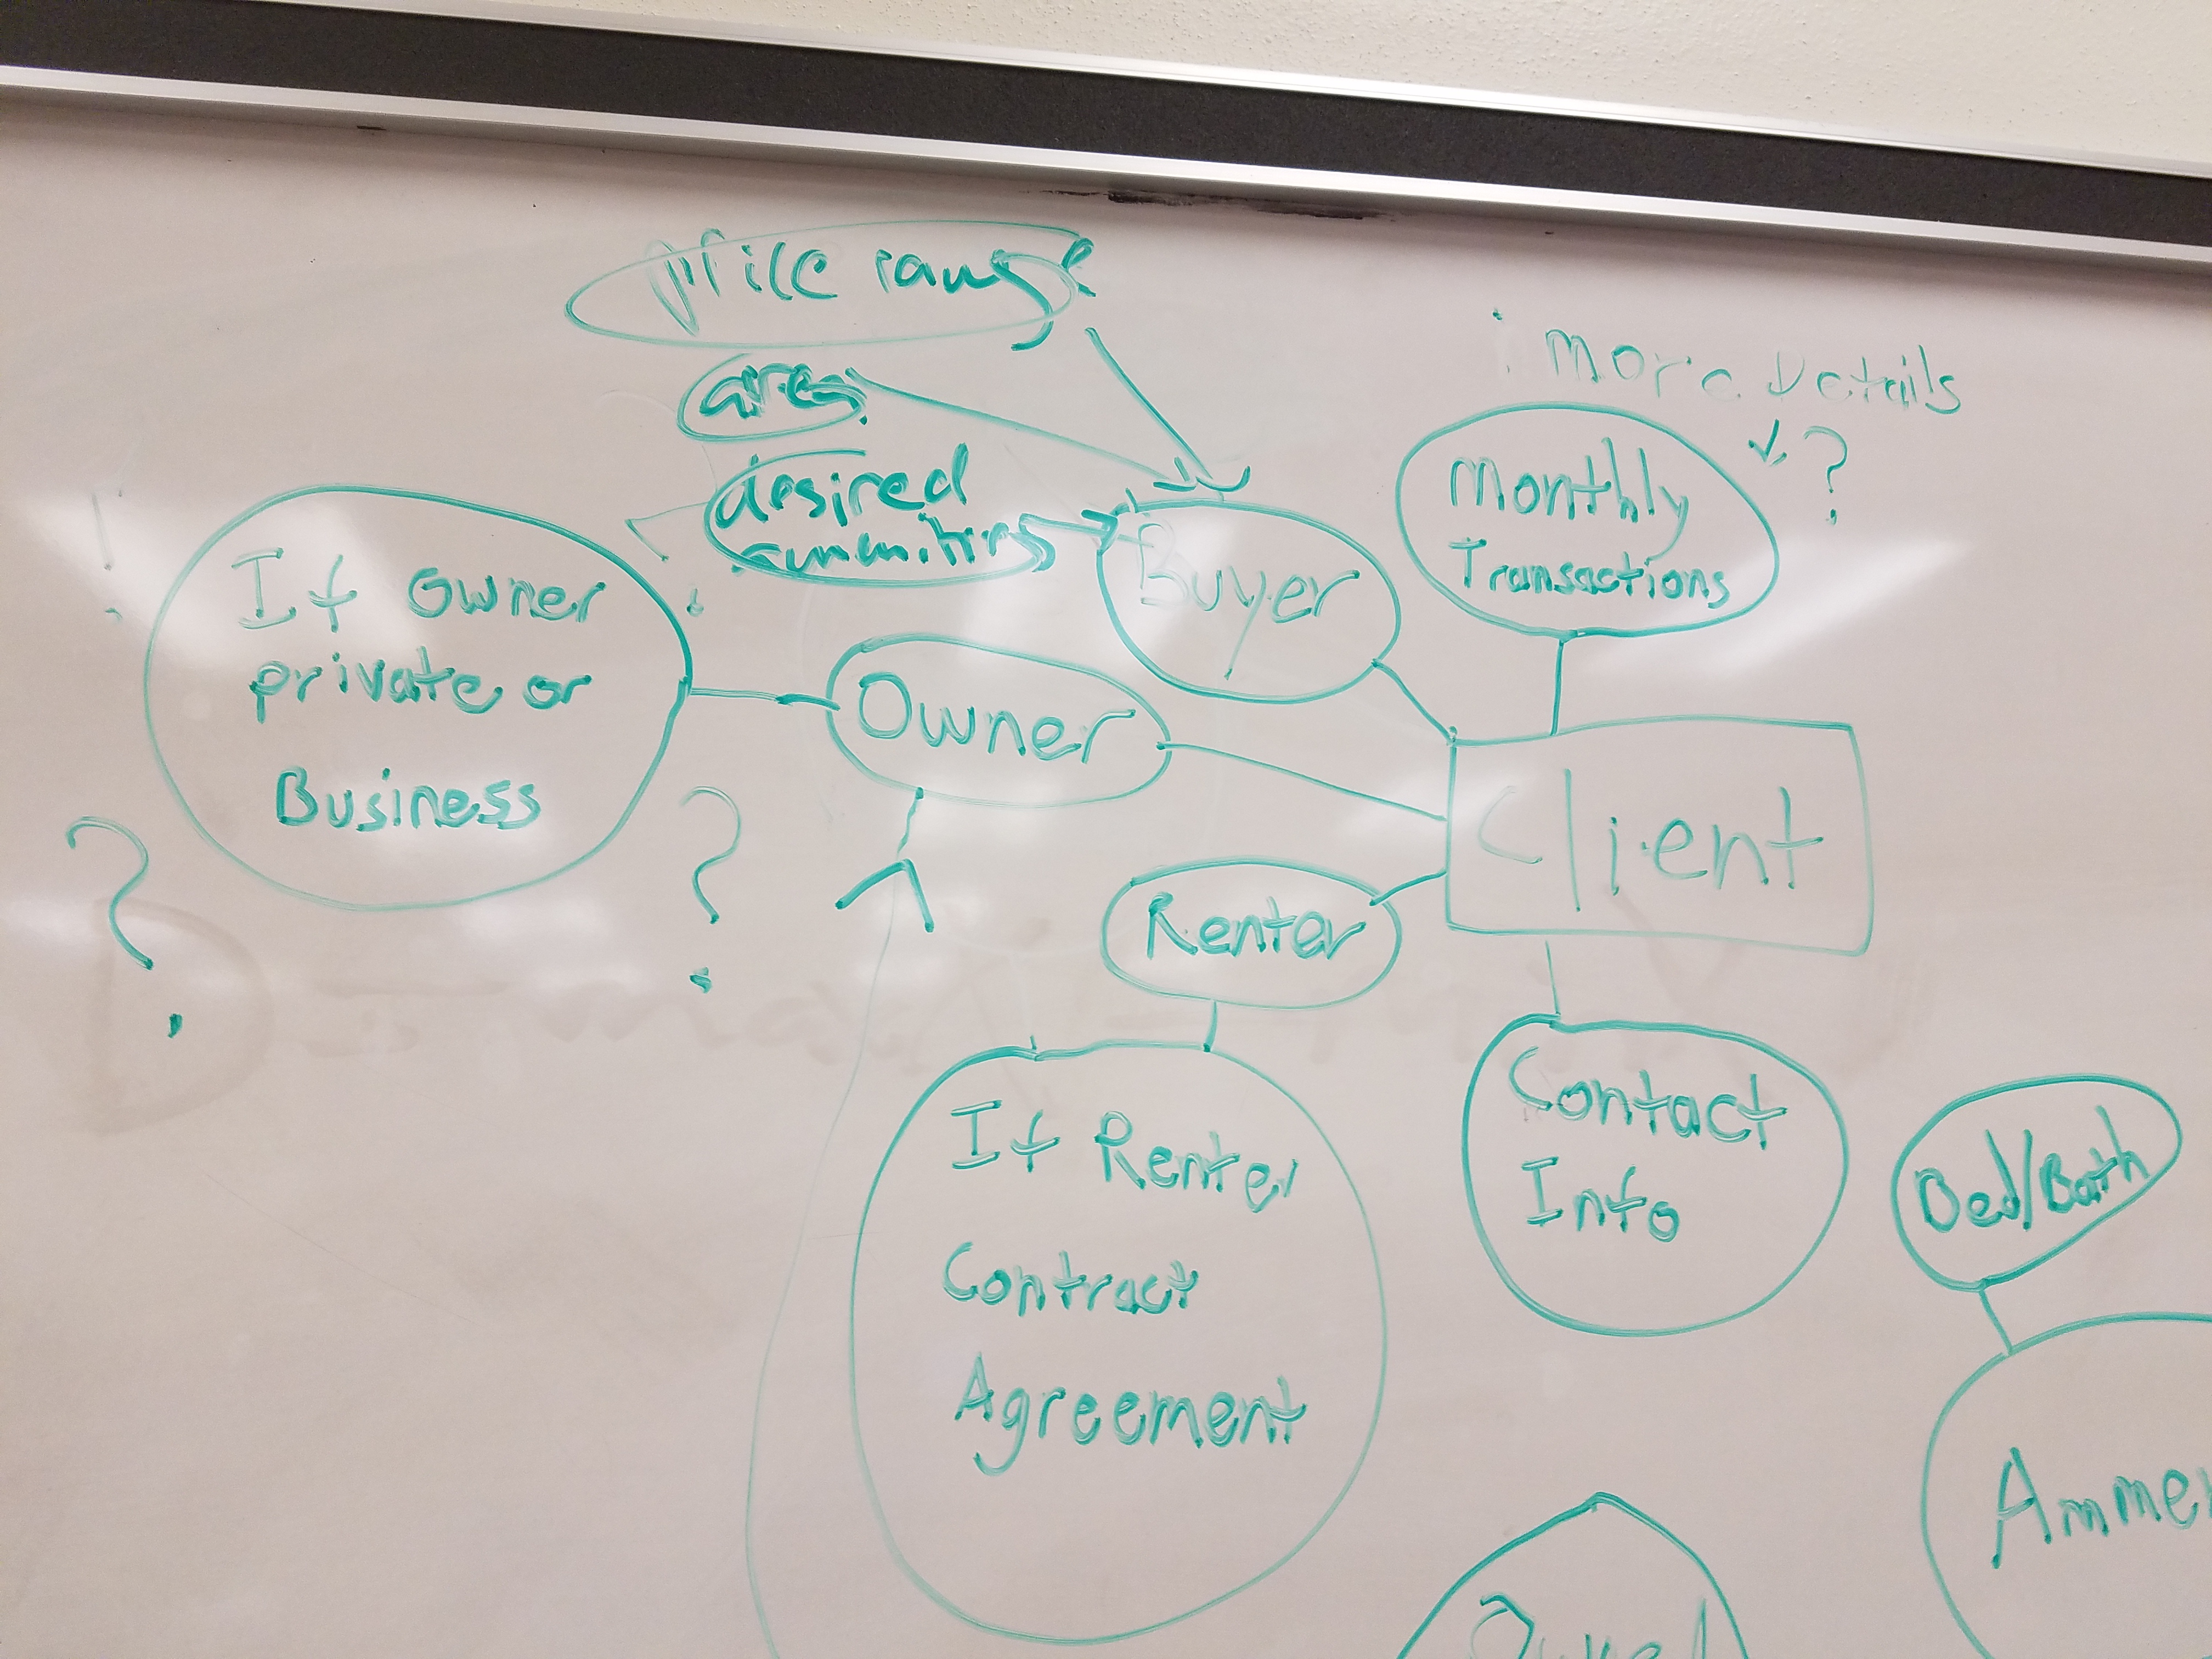 Price range
area
desired
ammenities
More Details
?
Monthly
Transactions
Buyer
If Owner
private or
Business
?
?
Owner
Client
Renter
If Renter
Contract
Agreement
Contact
Info
Bed/Bath